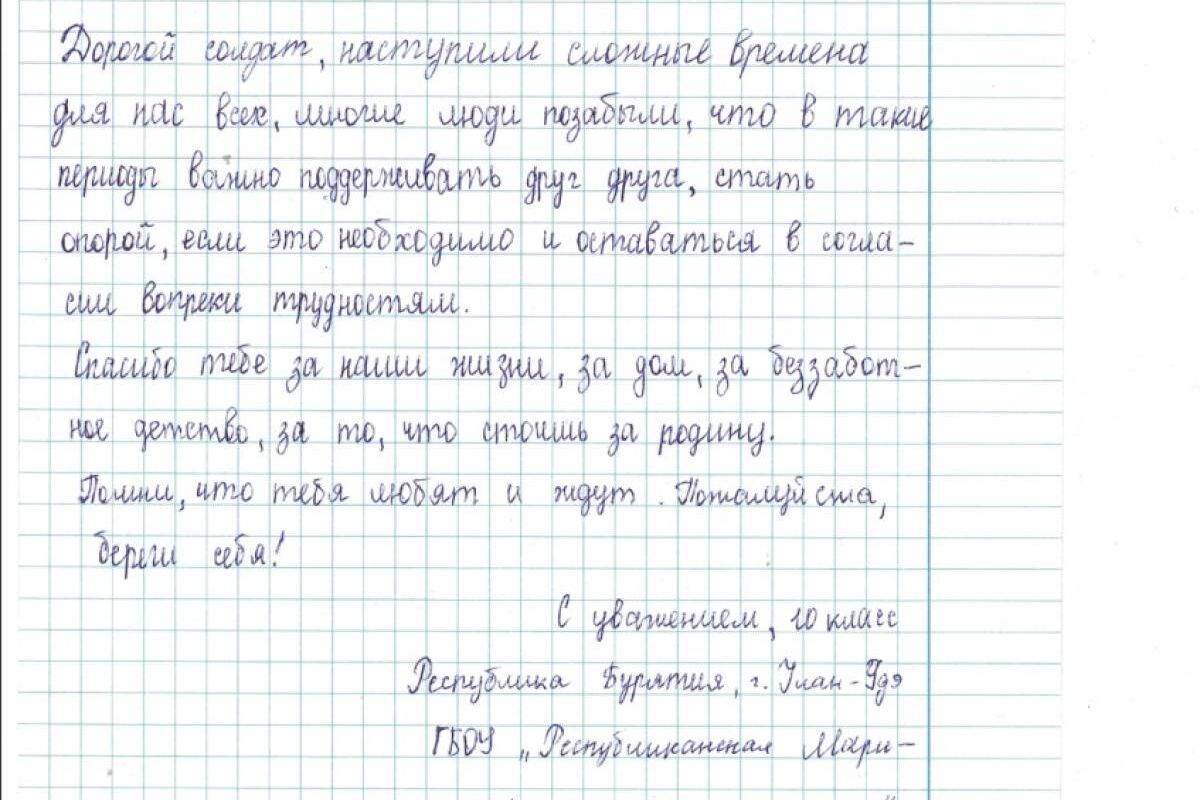 Дорогой солдат, наступили сложные времена
для нас всех, многие люди позабыли, что в такие
периоды важно поддерживать друг друга, стать
опорой, если это необходимо и оставаться в согла-
сии вопреки трудностям.
Спасибо тебе за наши жизни, за дом, за беззабот-
ное детство, за то, что стоишь за родину.
Помни, что тебя любят и ждут. Пожалуйста,
береги себя!
С уважением, 10 класс
Республика Бурятия, г. Улан-Удэ
ГБОУ „Республиканская Мари-